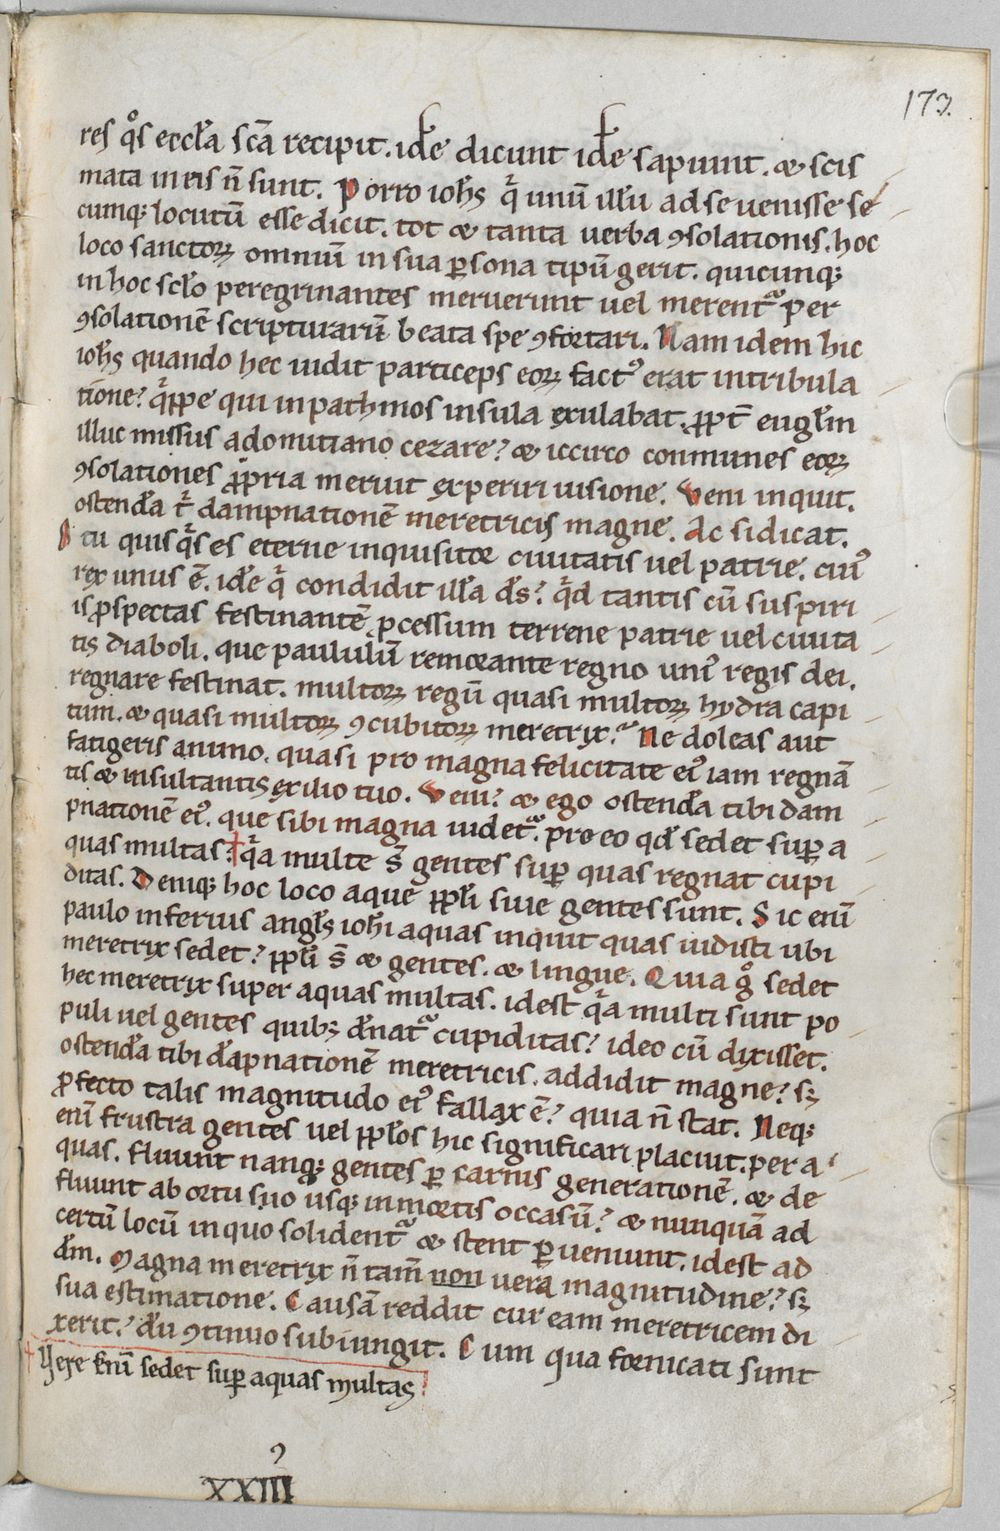 173.
res qͦs eccl̄a sc̄a recipit. id̄e dicunt id̄e sapiunt. & scis
mata in eis n̄ sunt. Porro ioh̄s qͥ unū illū ad se uenisse se
cumq; locutū esse dicit. tot & tanta uerba ꝯsolationis. hoc
loco sanctoꝝ omniū in sua ꝑsona tipū gerit. quicunq;
in hoc scl̄o peregrinantes meruerunt uel merent᷑ per
ꝯsolationē scripturarū beata spe ꝯfortari. Nam idem hic
ioh̄s quando hec uidit particeps eoꝝ factꝰ erat in tribula
tione? qͥppe qui in pathmos insula exulabat. ꝓpt̄ eugl̄m
illuc missus a domitiano cezare? & iccirco conmunes eoꝝ
ꝯsolationes ꝓpria meruit experiri uisione. Veni inquit.
ostend̄a tͥ dampnationē meretricis magne. Ac si dicat.
O tu quisqͥs es eterne inquisitor ciuitatis uel patrie. cuiꝰ
rex unus ē. id̄e qͥ condidit ill̄a d̄s? qͥd tantis cū suspiri
is ꝓspectas festinantē ꝓcessum terrene patrie uel ciuita
tis diaboli. que paululū remorante regno uniꝰ regis dei.
regnare festinat. multoꝝ regū quasi multoꝝ hydra capi
tum. & quasi multoꝝ ꝯcubitoꝝ meretrix? Ne doleas aut
fatigeris animo. quasi pro magna felicitate eiꝰ iam regnā
tis & insultantis exilio tuo. Veni? & ego ostend̄a tibi dam
pnationē eiꝰ. que sibi magna uidet᷑. pro eo qd̄ sedet suꝑ a
quas multas? † qͥa multe s̄ gentes suꝑ quas regnat cupi
ditas. Deniq; hoc loco aque ppl̄i siue gentes sunt. Sic enī
paulo inferius angl̄s ioh̄i aquas inquit quas uidisti ubi
meretrix sedet? ppl̄i s̄ & gentes. & lingue. Quia gͦ sedet
hec meretrix super aquas multas. id est qͥa multi sunt po
puli uel gentes quibꝫ d̄nat᷑ cupiditas? ideo cū dixisset.
ostend̄a tibi d̄apnationē meretricis. addidit magne? sꝫ
ꝓfecto talis magnitudo eiꝰ fallax ē? quia n̄ stat. Neq;
enī frustra gentes uel ppl̄os hic significari placuit. per a
quas. fluunt nanq; gentes ꝑ carnis generationē. & de
fluunt ab ortu suo usq; in mortis occasū? & nunquā ad
certū locū in quo solident᷑ & stent ꝑueniunt. id est ad
d̄m. Magna meretrix n̄ tam̄ non uera magnitudine? sꝫ
sua estimatione. Causā reddit cur eam meretricem di
xerit? dū ꝯtinuo subiungit. Cum qua fornicati sunt
† Vere enī sedet suꝑ aquas multas
XXIII